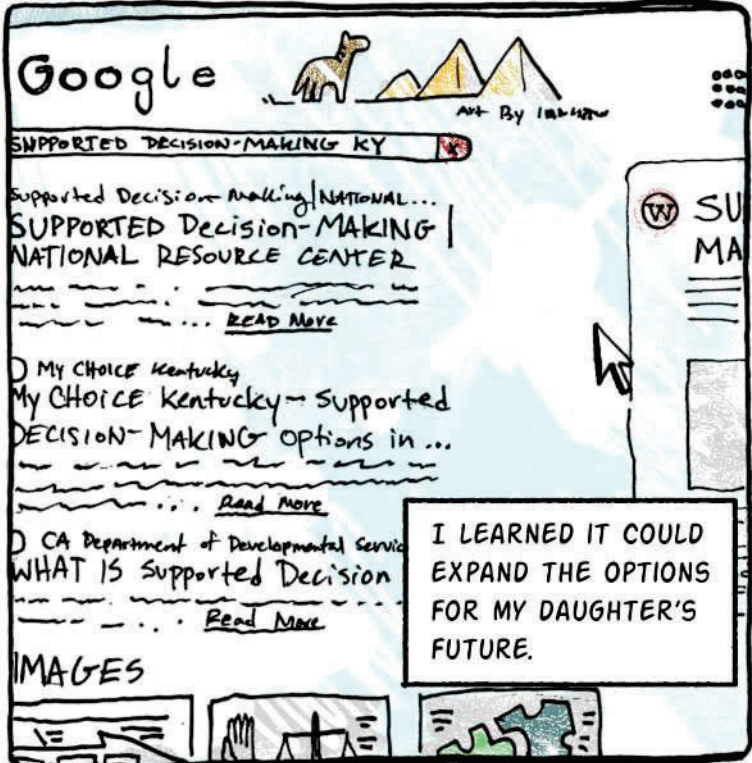 Google
Art By
SUPPORTED DECISION-MAKING KY
Supported Decision-Making | NATIONAL...
SUPPORTED Decision-MAKING |
NATIONAL RESOURCE CENTER
... READ More
My CHOICE Kentucky
My CHOICE Kentucky - Supported
DECISION-MAKING options in ...
... Read More
CA Department of Developmental Servic
WHAT IS Supported Decision
... Read More
IMAGES
W SU
MA
I LEARNED IT COULD
EXPAND THE OPTIONS
FOR MY DAUGHTER'S
FUTURE.